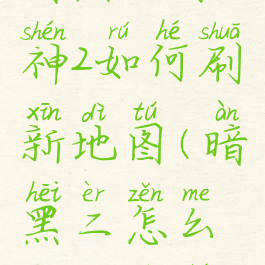 shén rú hé shuā
神2如何刷
xīn dì tú àn
新地图(暗
hēi èr zěn me
黑二怎么